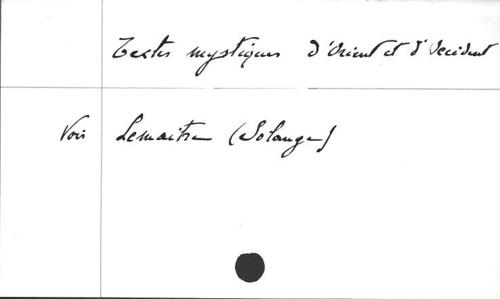 Textes mystiques d'Orient et d'Occident
Voir Lemaitre (Solange)